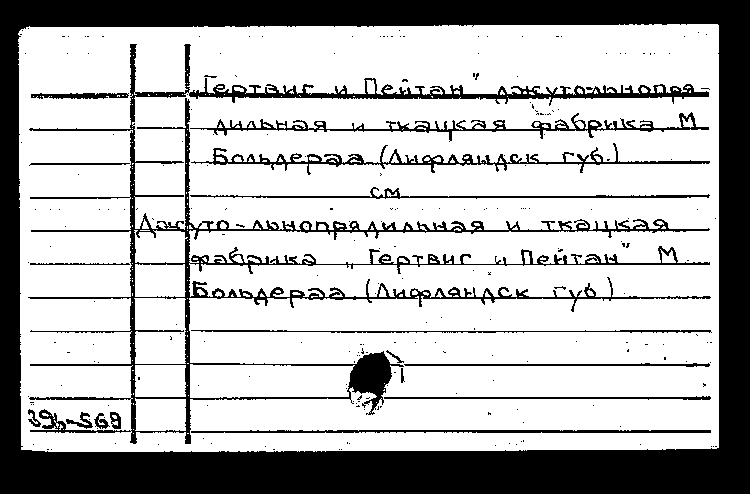 „Гертвиг и Пейтан" джуто-льнопря-
дильная и ткацкая фабрика. М
Больдераа (Лифляндск. губ.)
см
Джуто-льнопрядильная и ткацкая
фабрика „Гертвиг и Пейтан" М
Больдераа. (Лифляндск губ)